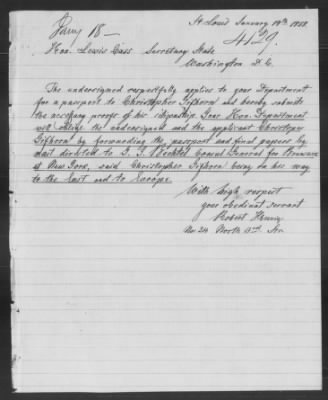 St Louis January 14th 1858
Jany 18 —
4129.
Hon. Lewis Cass. Secretary State
Washington D. C.
The undersigned respectfully applies to your Department
for a passport to Christopher Gifhorn and hereby submits
the necessary proofs of his citizenship. Your Hon. Department
will oblige the undersigned and the applicant Christopher
Gifhorn by forwarding the passport and final papers by
mail directed to Consul General for
at New York, said Christopher Gifhorn being on his way
to the East and to Europe.
With high respect
your obedient servant
Robert
No 24 North St.